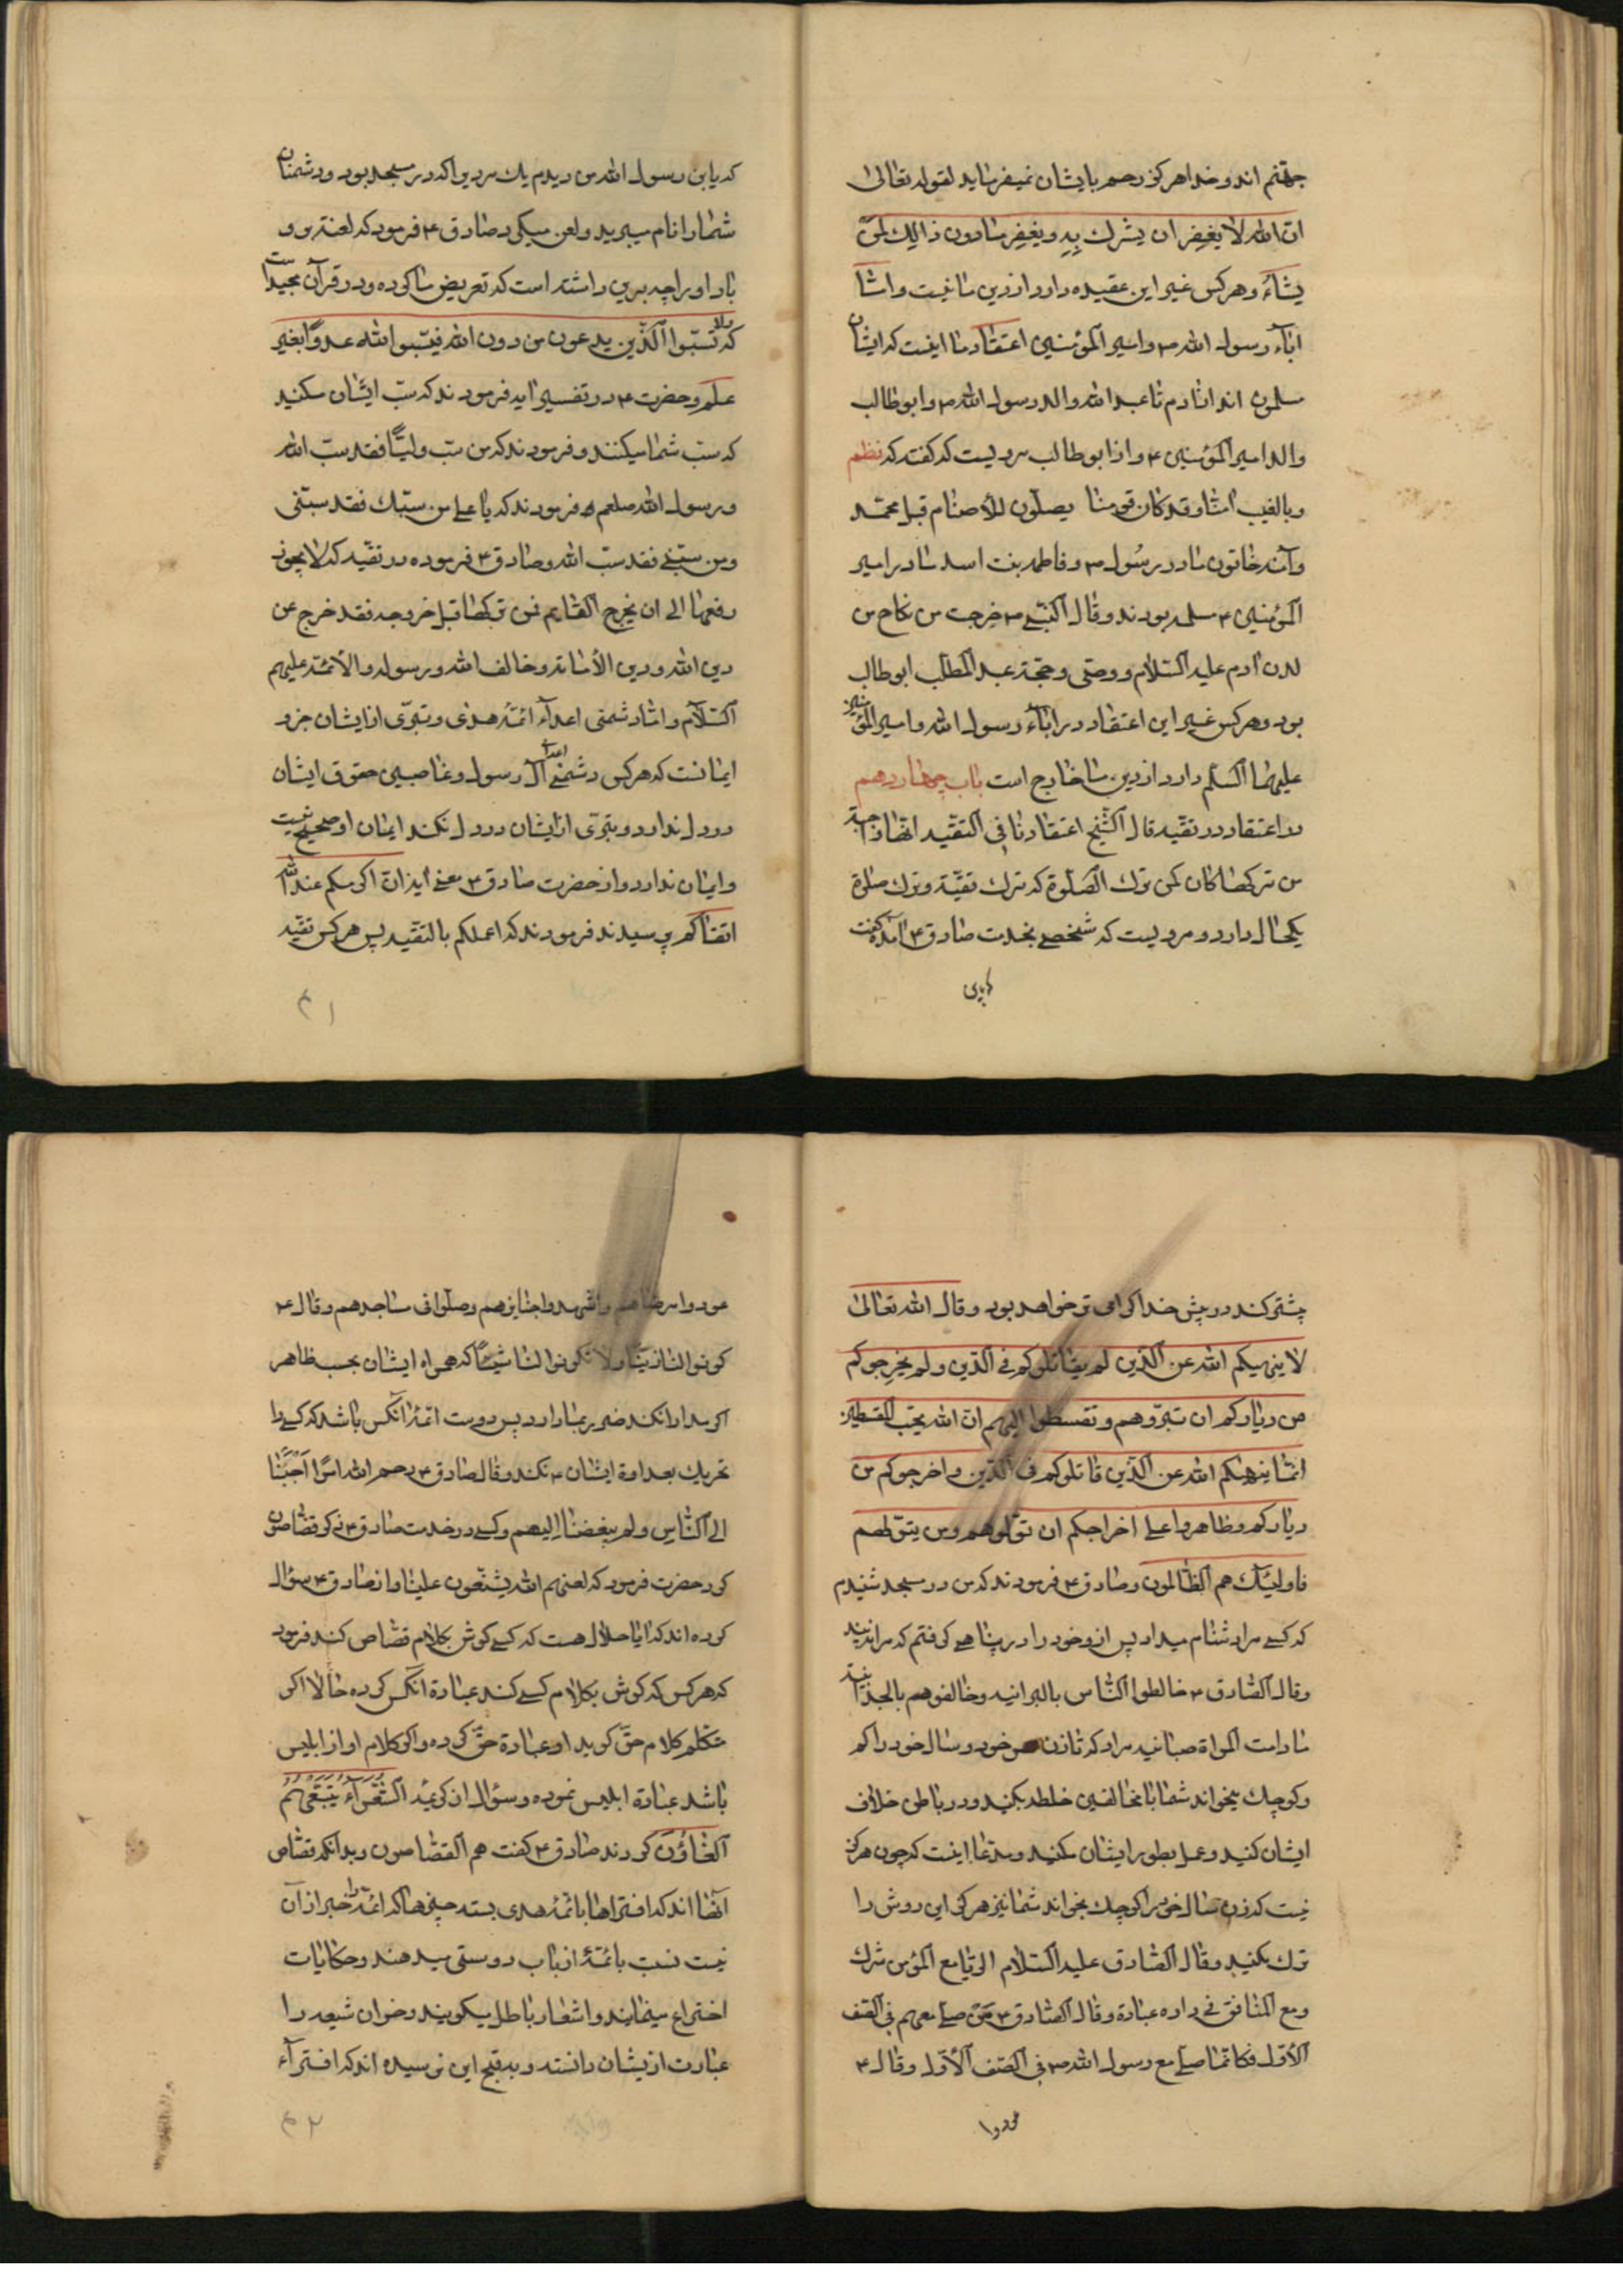 جهنم اند و خدا هرکز رحم بایشان نمیفرماید لقوله تعالی
ان الله لا یغفر ان یشرک به و یغفر مادون ذالک لمن
یشاء و هرکس غیر این عقیده دارد از دین ما نیست و اما
اباء رسول الله ص و امیر المؤمنین اعتقاد ما اینست که ایشان
مسلمون اند از ادم تا عبد الله والد رسول الله ص و ابو طالب
والد امیر المؤمنین ع و از ابو طالب مرویست که کفته که نظم
و بالغیب امنا و قد کان قومنا یصلون للأصنام قبل محمد
و آمنه خاتون مادر رسول ص و فاطمه بنت اسد مادر امیر
المؤمنین ع مسلمه بودند و قال النبی ص خرجت من نکاح من
لدن ادم علیه السلام و وصی و حجة عبد المطلب ابو طالب
بود و هرکس غیر این اعتقاد در اباء رسول الله و امیر المؤمنین
علیهما السلم دارد از دین ما خارج است باب چهاردهم
در اعتقاد در تقیه قال الشیخ اعتقادنا فی التقیه انها واجبة
من ترکها کان کمن ترک الصلوة که ترک تقیة و ترک صلوة
یکحال دارد و مرویست که شخصی بخدمت صادق ع آمده کفت
که یابن
که یابن رسول الله من دیدم یک مردی را که در مسجد بود و دشمنان
شما را نام میبرید و لعن میکرد صادق ع فرمود که لعنة بر و
باد او را چه برین داشته است که تعریض ما کرده و در قرآن مجید است
که ولا تسبوا الذین یدعون من دون الله فیسبوا الله عدوا بغیر
علم و حضرت ع در تفسیر ایه فرمودند که سب ایشان مکنید
که سب شما میکنند و فرمودند که من سب ولیا فقد سب الله
و رسول الله صلعم فرمودند که یا علی من سبک فقد سبنی
و من سبنی فقد سب الله و صادق ع فرموده در تقیه که لا یجوز
رفعها الی ان یخرج القایم فمن ترکها قبل خروجه فقد خرج عن
دین الله و دین الأمامة و خالف الله و رسوله و الائمة علیهم
السلام و اما دشمنی اعداء ائمه هدی و تبری از ایشان جزو
ایمانست که هرکس دشمنی اعداء آل رسول و غاصبین حقوق ایشان
در دل ندارد و تبری از ایشان در دل نکند ایمان او صحیح نیست
و ایمان ندارد و از حضرت صادق ع معنی ایه ان اکرمکم عند الله
اتقاکم پرسیدند فرمودند که اعملکم بالتقیه پس هرکس تقیه
۴۱
بیشتر کند در پیش خدا کرامی تر خواهد بود و قال الله تعالی
لا ینهیکم الله عن الذین لم یقاتلوکم فی الدین و لم یخرجوکم
من دیارکم ان تبروهم و تقسطوا الیهم ان الله یحب المقسطین
انما ینهیکم الله عن الذین قاتلوکم فی الدین و اخرجوکم من
دیارکم و ظاهروا علی اخراجکم ان تولوهم و من یتولهم
فاولئک هم الظالمون و صادق ع فرمودند که من در مسجد شنیدم
که کسی مرا دشنام میداد پس از و خود را در پناهی کرفتم که مرا نه بیند
و قال الصادق ع خالطوا الناس بالبرانیه و خالفوهم بالجوانیة
مادامت المراة صبیانیه مراد که تا زن خود و سال خود را کم
و کوچک میخواند شما با مخالفین خلطه بکنید و در باطن خلاف
ایشان کنید و عمل بطور ایشان مکنید و مدعا اینست که چون هرکز
نیست که زن سال خود را کوچک نخواند شما نیز هرکز این روش را
ترک مکنید و قال الصادق علیه السلام الریا مع المؤمن شرک
و مع المنافق فی داره عبادة و قال الصادق ع من صلی معهم فی الصف
الأول فکانما صلی مع رسول الله ص فی الصف الأول و قال ع
عودوا
عودوا مرضاهم و اشهدوا جنایزهم و صلوا فی مساجدهم و قال ع
کونوا لنا زینا و لا تکونوا لنا شینا که همراه ایشان بحسب ظاهر
اکر مدارا نکند ضرر بما دارد پس دوست ائمه آنکس باشد که کسی را
تحریک بعداوة ایشان ع نکند و قال صادق ع رحم الله امرا احببنا
الی الناس و لم یبغضنا الیهم و کسی در خدمت صادق ع ذکر قصاصون
کرد حضرت فرمود که لعنهم الله یشنعون علینا و از صادق ع سؤال
کرده اند که ایا حلال هست که کسی کوش بکلام قصاص کند فرمود
که هرکس که کوش بکلام کسی کند عبادة انکس کرده حالا اکر
متکلم کلام حق کوید او عبادة حق کرده و اکر کلام او از ابلیس
باشد عبادة ابلیس نموده و سؤال از کریمه الشعراء یتبعهم
الغاؤن کردند صادق ع کفت هم القصاصون و بدانکه قصاص
آنها اند که افتراها بائمه هدی بسته چیزها که ائمه را خبر از آن
نیست نسبت بائمه از باب دوستی میدهند و حکایات
اختراع مینمایند و اشعار باطل میکویند و خوان شیعه را
عبارت از یشان دانسته و بد قبح این نرسیده اند که افتراء
۴۲